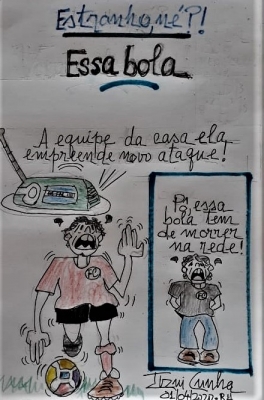 Estranho, né?!
Essa bola
A equipe da casa ela,
empreende novo ataque!
Pô, essa
bola tem
de morrer
na rede!
FC
Cunha